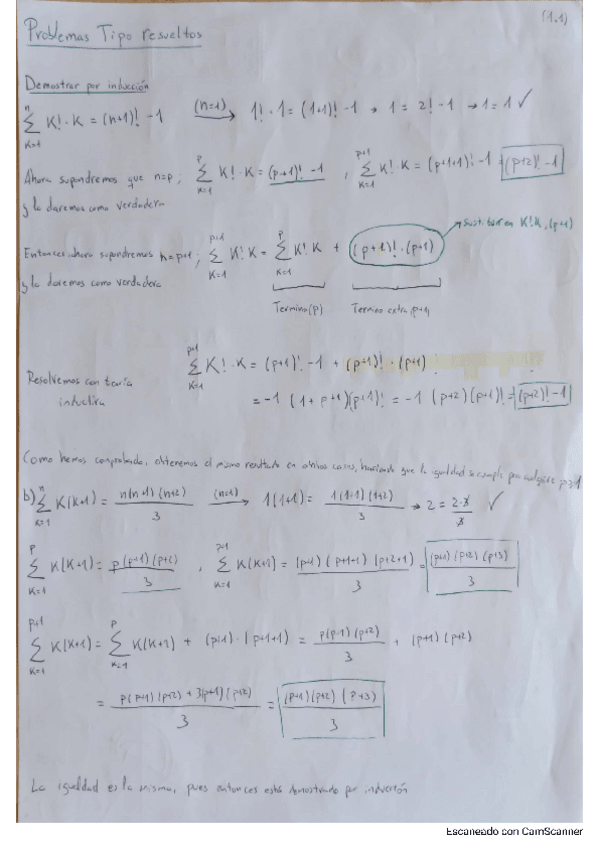 (1.1)
Problemas Tipo resueltos
Demostrar por inducción
n
∑ K!·K = (n+1)! -1 (n=1) → 1!·1 = (1+1)! -1 → 1 = 2! -1 → 1=1 ✓
K=1
Ahora supondremos que n=p, ∑ K!·K = (p+1)! -1 , ∑ K! K = (p+1+1)! -1 = (p+2)! -1
y la daremos como verdadera
→ Sustituir en K!·K, (p+1)
Entonces ahora supondremos n=p+1; ∑ K! K = ∑ K! K + (p+1)!·(p+1)
y la daremos como verdadera
Termino (p) Termino extra (p+1)
p+1
∑ K!·K = (p+1)! -1 + (p+1)!·(p+1)
K=1
Resolvemos con teoría
inductiva
= -1 (1+p+1)(p+1)! = -1 (p+2)(p+1)! = (p+2)! -1
Como hemos comprobado, obtenemos el mismo resultado en ambos casos, haciendo que la igualdad se cumple para cualquier p≥1
b) ∑ K(K+1) = n(n+1)(n+2)/3 (n=1) → 1(1+1) = 1(1+1)(1+2)/3 → 2 = 2·3/3 ✓
p
∑ K(K+1) = p(p+1)(p+2)/3 , ∑ K(K+1) = (p+1)(p+1+1)(p+2+1)/3 = (p+1)(p+2)(p+3)/3
K=1
p+1 p
∑ K(K+1) = ∑ K(K+1) + (p+1)·(p+1+1) = p(p+1)(p+2)/3 + (p+1)(p+2)
K=1 K=1
= p(p+1)(p+2) + 3(p+1)(p+2)/3 = (p+1)(p+2)(p+3)/3
La igualdad es la misma, pues entonces está demostrado por inducción
Escaneado con CamScanner